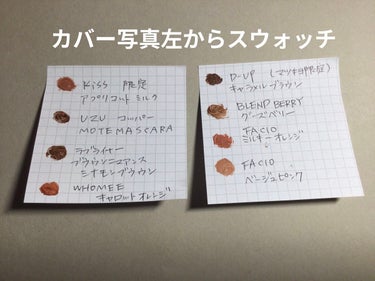 カバー写真左からスウォッチ
Kiss 限定
アプリコットミルク
UZU コッパー
MOTE MASCARA
ラブライナー
ブラウンロマンス
シナモンブラウン
WHOMEE
キャロットオレンジ
D-UP (マツキヨ限定)
キャラメルブラウン
BLEND BERRY
グーズベリー
FACIO
ミルキーオレンジ
FACIO
ベージュピンク